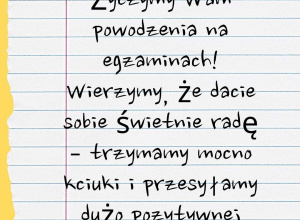 Życzymy Wam
powodzenia na
egzaminach!
Wierzymy, że dacie
sobie świetnie radę
- trzymamy mocno
kciuki i przesyłamy
dużo pozytywnej